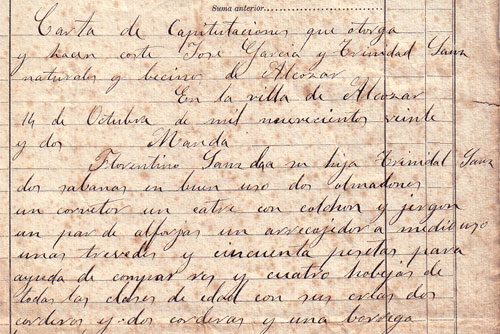 Suma anterior
Carta de Capitutaciones que otorga
y hacen coste José García y Trinidad Sanz
naturales y becinos de Alcozar
En la villa de Alcozar
14 de Octubre de mil nuevecientos veinte
y dos Manda
Florentino Sanz da a su hija Trinidad Sanz
dos sabanas en buen uso dos almadones
un corvetor un catre con colchon y jergon
un par de alforjas un arrecojedor a medio uso
unas trevedes y cincuenta pesetas para
ayuda de comprar res y cuatro hobejas de
todas las clases de edad con sus crias dos
corderos y dos corderas y una borrega